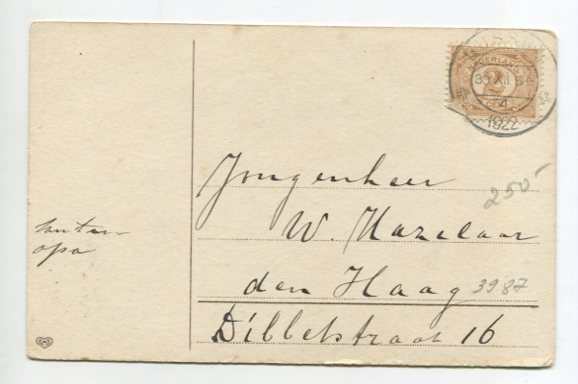 NEDERLAND
2½
CENT
1922
Jongenheer
W. Hazelaar
den Haag
Dibbetstraat 16
250-
3987
opa